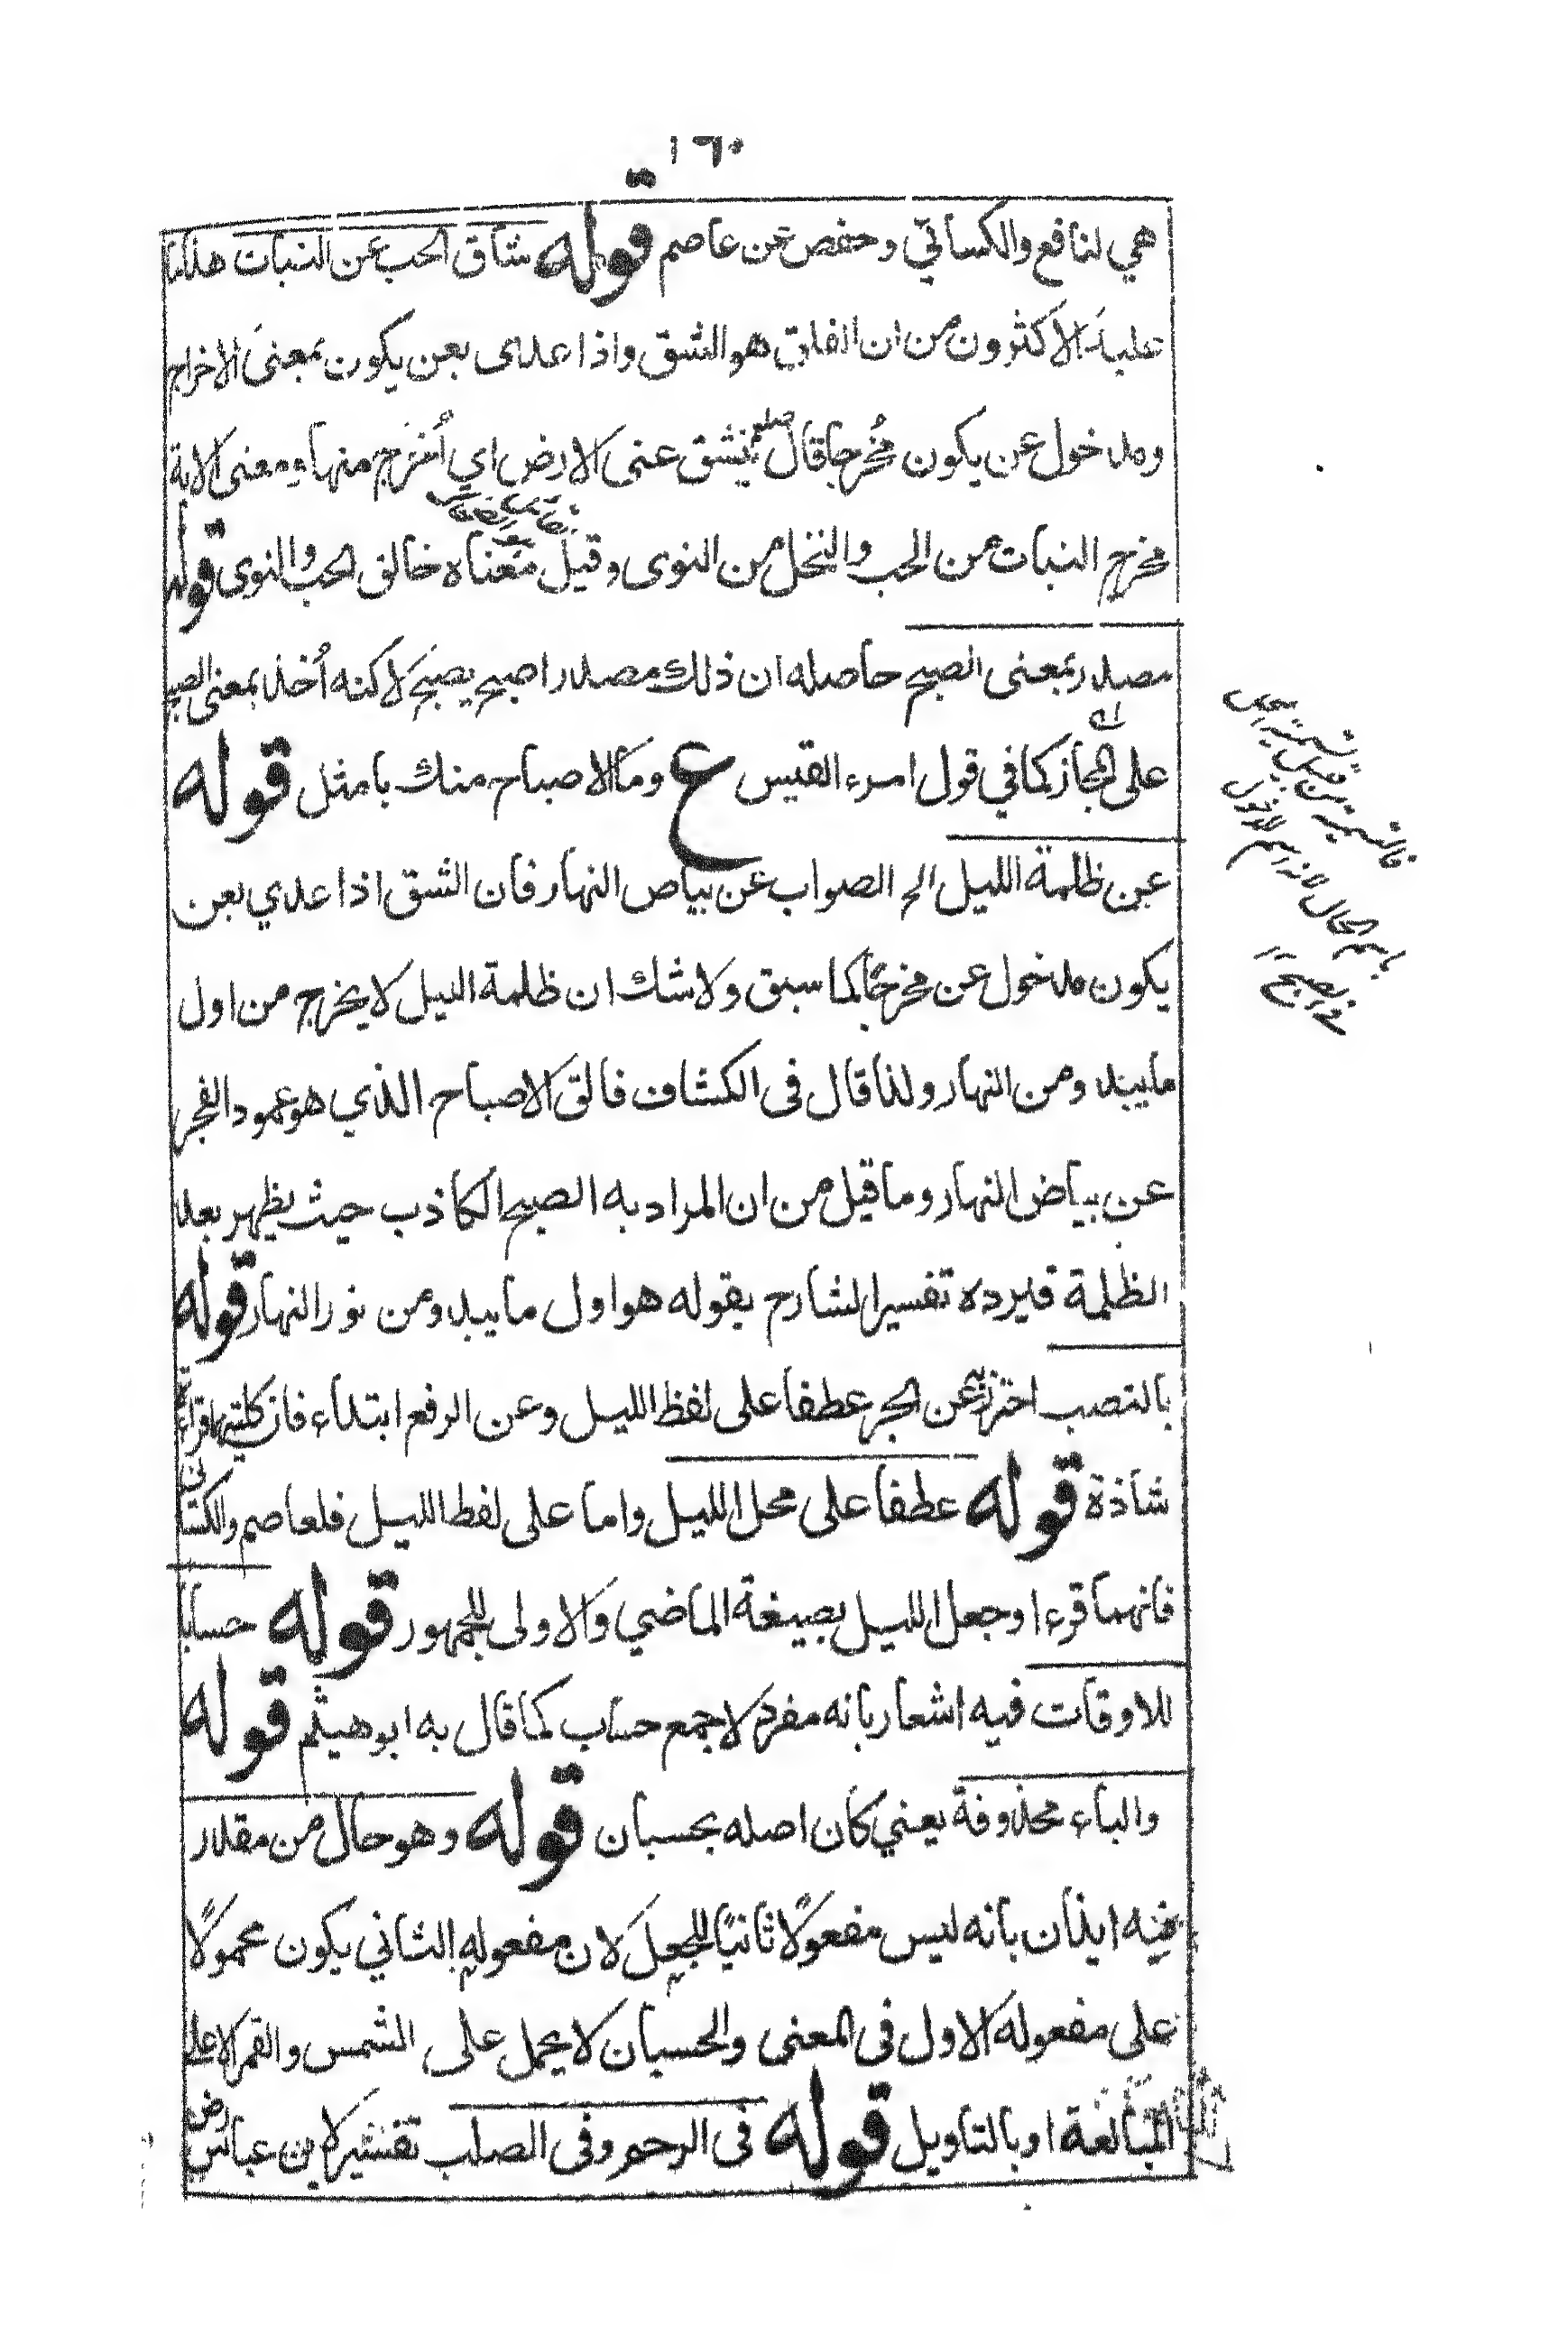 ١٦٠
هي لنافع والكسائي وحفص عن عاصم قوله شاق الحب عن النبات هذا ما
عليه الاكثرون من ان الفلق هو الشق واذا عدى بعن يكون بمعنى الاخراج
ومدخول عن يكون مُخرجا قال صلعم ينشق عنى الارض اي أُخرَج منها ومعنى الاية
مخرج النبات من الحب والنخل من النوى وقيل معناه خالق الحب والنوى قوله
مصدر بمعنى الصبح حاصله ان ذلك مصدر اصبح يصبح لاكنه أُخذ بمعنى الصبح
على المجاز كما في قول امرء القيس ع وما الاصباح منك بامثل قوله
عن ظلمة الليل الخ الصواب عن بياض النهار فان الشق اذا عدي بعن
يكون مدخول عن مخرجًا كما سبق ولاشك ان ظلمة الليل لا يخرج من اول
ما يبدو من النهار ولذا قال فى الكشاف فالق الاصباح الذي هو عمود الفجر
عن بياض النهار وما قيل من ان المراد به الصبح الكاذب حيث يظهر بعده
الظلمة فيرده تفسير الشارح بقوله هو اول ما يبدو من نور النهار قوله
بالنصب احترز به عن الجر عطفا على لفظ الليل وعن الرفع ابتداء فان كلتيهما قراءة
شاذة قوله عطفا على محل الليل واما على لفظ الليل فلعاصم والكسائي
فانهما قرءا وجعل الليل بصيغة الماضي والاولى للجمهور قوله حسابا
للاوقات فيه اشعار بانه مفرد لا جمع حساب كما قال به ابو هيثم قوله
والباء محذوفة يعني كان اصله بحسبان قوله وهو حال من مقدار
فيه ايذان بانه ليس مفعولًا ثانيًا للجعل لان مفعوله الثاني يكون محمولًا
على مفعوله الاول فى المعنى والحسبان لا يحمل على الشمس والقمر الا على
المبالغة او بالتاويل قوله فى الرحم وفى الصلب تفسير لابن عباس رض
باسم الحال
في الصبح ١٢